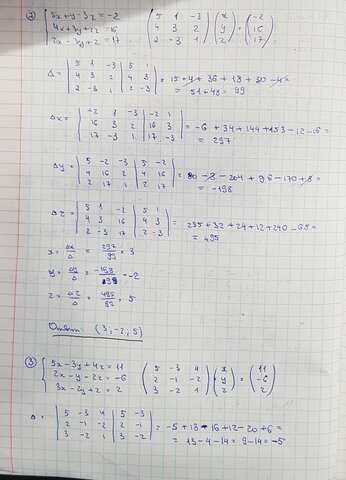 ② { 5x+y-3z=-2
4x+3y+2z=16
2x-3y+z=17
( 5 1 -3
4 3 2
2 -3 1 ) · ( x
y
z ) = ( -2
16
17 )
Δ = | 5 1 -3 | 5 1
4 3 2 | 4 3
2 -3 1 | 2 -3 = 15+4+36+18+30-4=
= 51+48 = 99
Δx = | -2 1 -3 | -2 1
16 3 2 | 16 3
17 -3 1 | 17 -3 = -6+34+144+153-12-16=
= 297
Δy = | 5 -2 -3 | 5 -2
4 16 2 | 4 16
2 17 1 | 2 17 = 80-8-204+96-170+8=
= -198
Δz = | 5 1 -2 | 5 1
4 3 16 | 4 3
2 -3 17 | 2 -3 = 255+32+24+12+240-68=
= 495
x = Δx/Δ = 297/99 = 3
y = Δy/Δ = -198/99 = -2
z = Δz/Δ = 495/99 = 5
Ответ (3,-2,5)
③ { 5x-3y+4z=11
2x-y-2z=-6
3x-2y+z=2
( 5 -3 4
2 -1 -2
3 -2 1 ) · ( x
y
z ) = ( 11
-6
2 )
Δ = | 5 -3 4 | 5 -3
2 -1 -2 | 2 -1
3 -2 1 | 3 -2 = -5+18-16+12-20+6=
= 13-4-14=9-14=-5